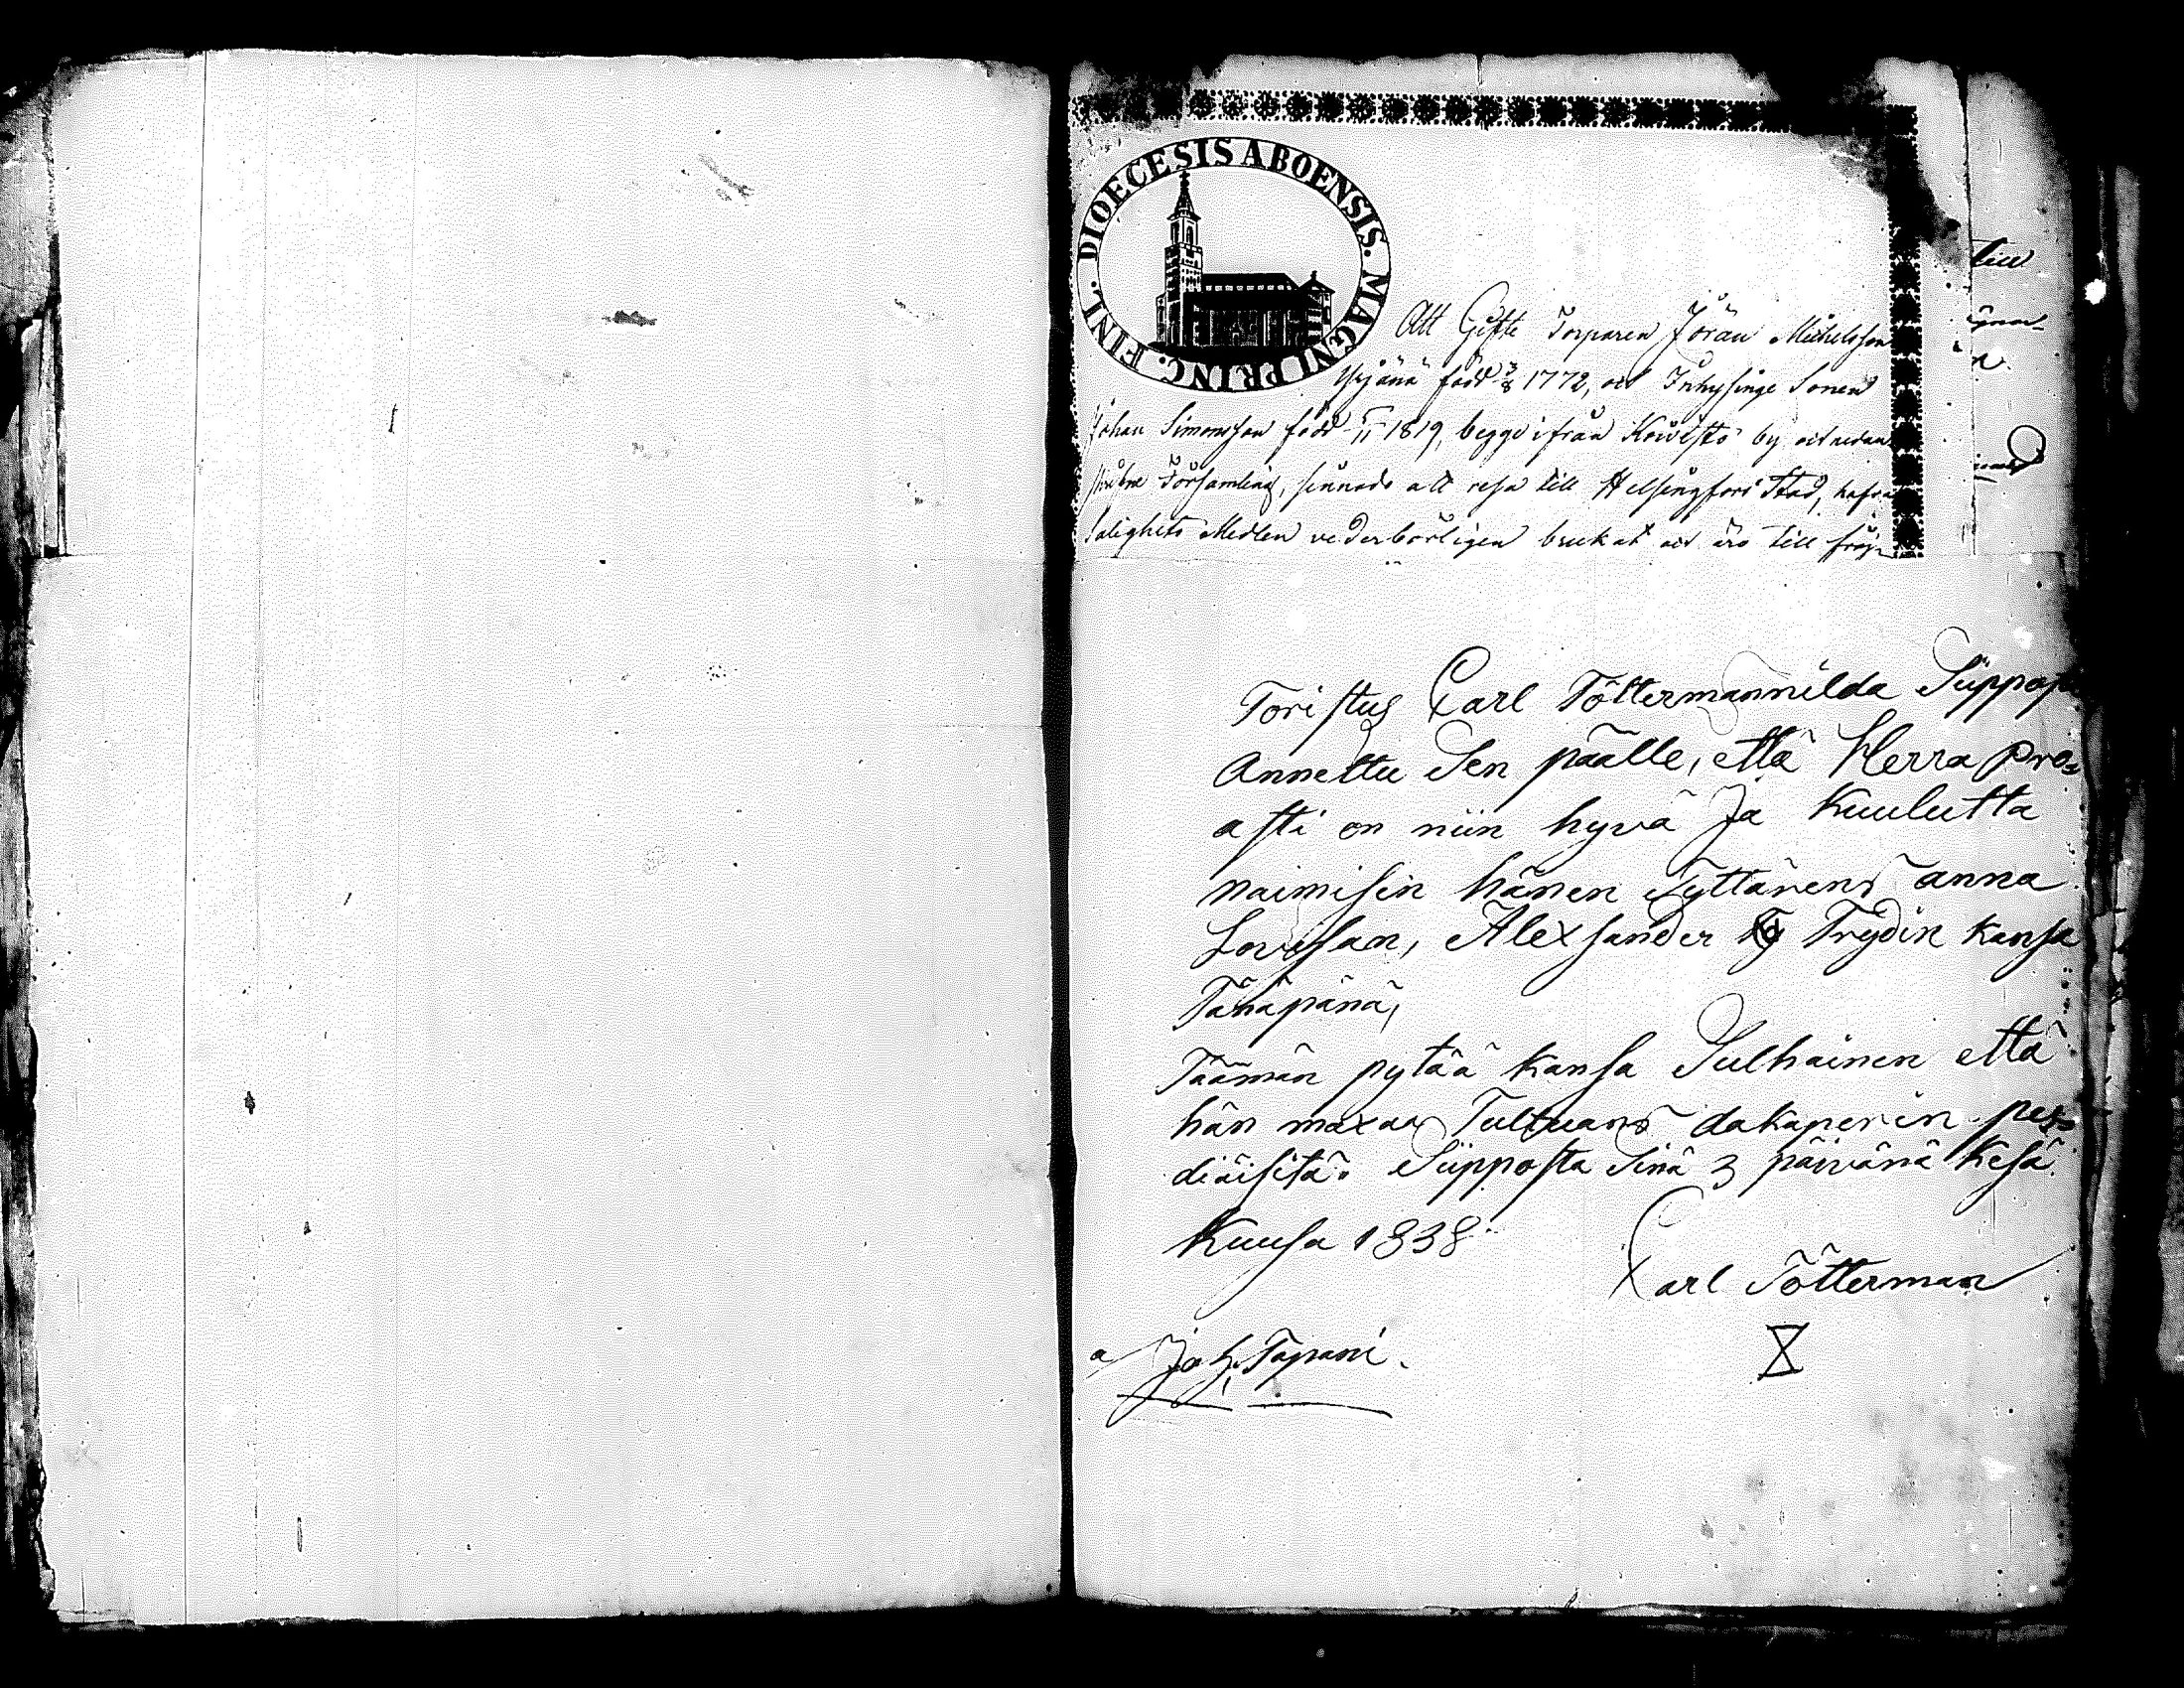 DIOECESIS ABOENSIS. MAGNI PRINC. FINL.
Att Gifte Torparen Jöran Michelsson
född 3/8 1772, och Inhysinge Sonen
Johan Simonsson född 1819, begge ifrån Koivisto by och nedan
Församling, sinnade att resa till Helsingfors Stad, hafva
Salighets Medlen vederbörligen brukat och äro till
till
Toristus Carl Töttermannilda Siipposta
Annettu Sen päälle, että Herra pro=
asti on niin hyvä Ja Kuulutta
naimisin hänen Tyttärens anna
Lovisan, Alexsander Trydin kansa
Tänäpänä,
Täämän pytää kansa Sulhainen että
hän maxaa Tultuans dakaperin
Siipposta Sinä 3 päivänä Kesä
Kuusa 1838
Carl Tötterman
Joh. Tapani.